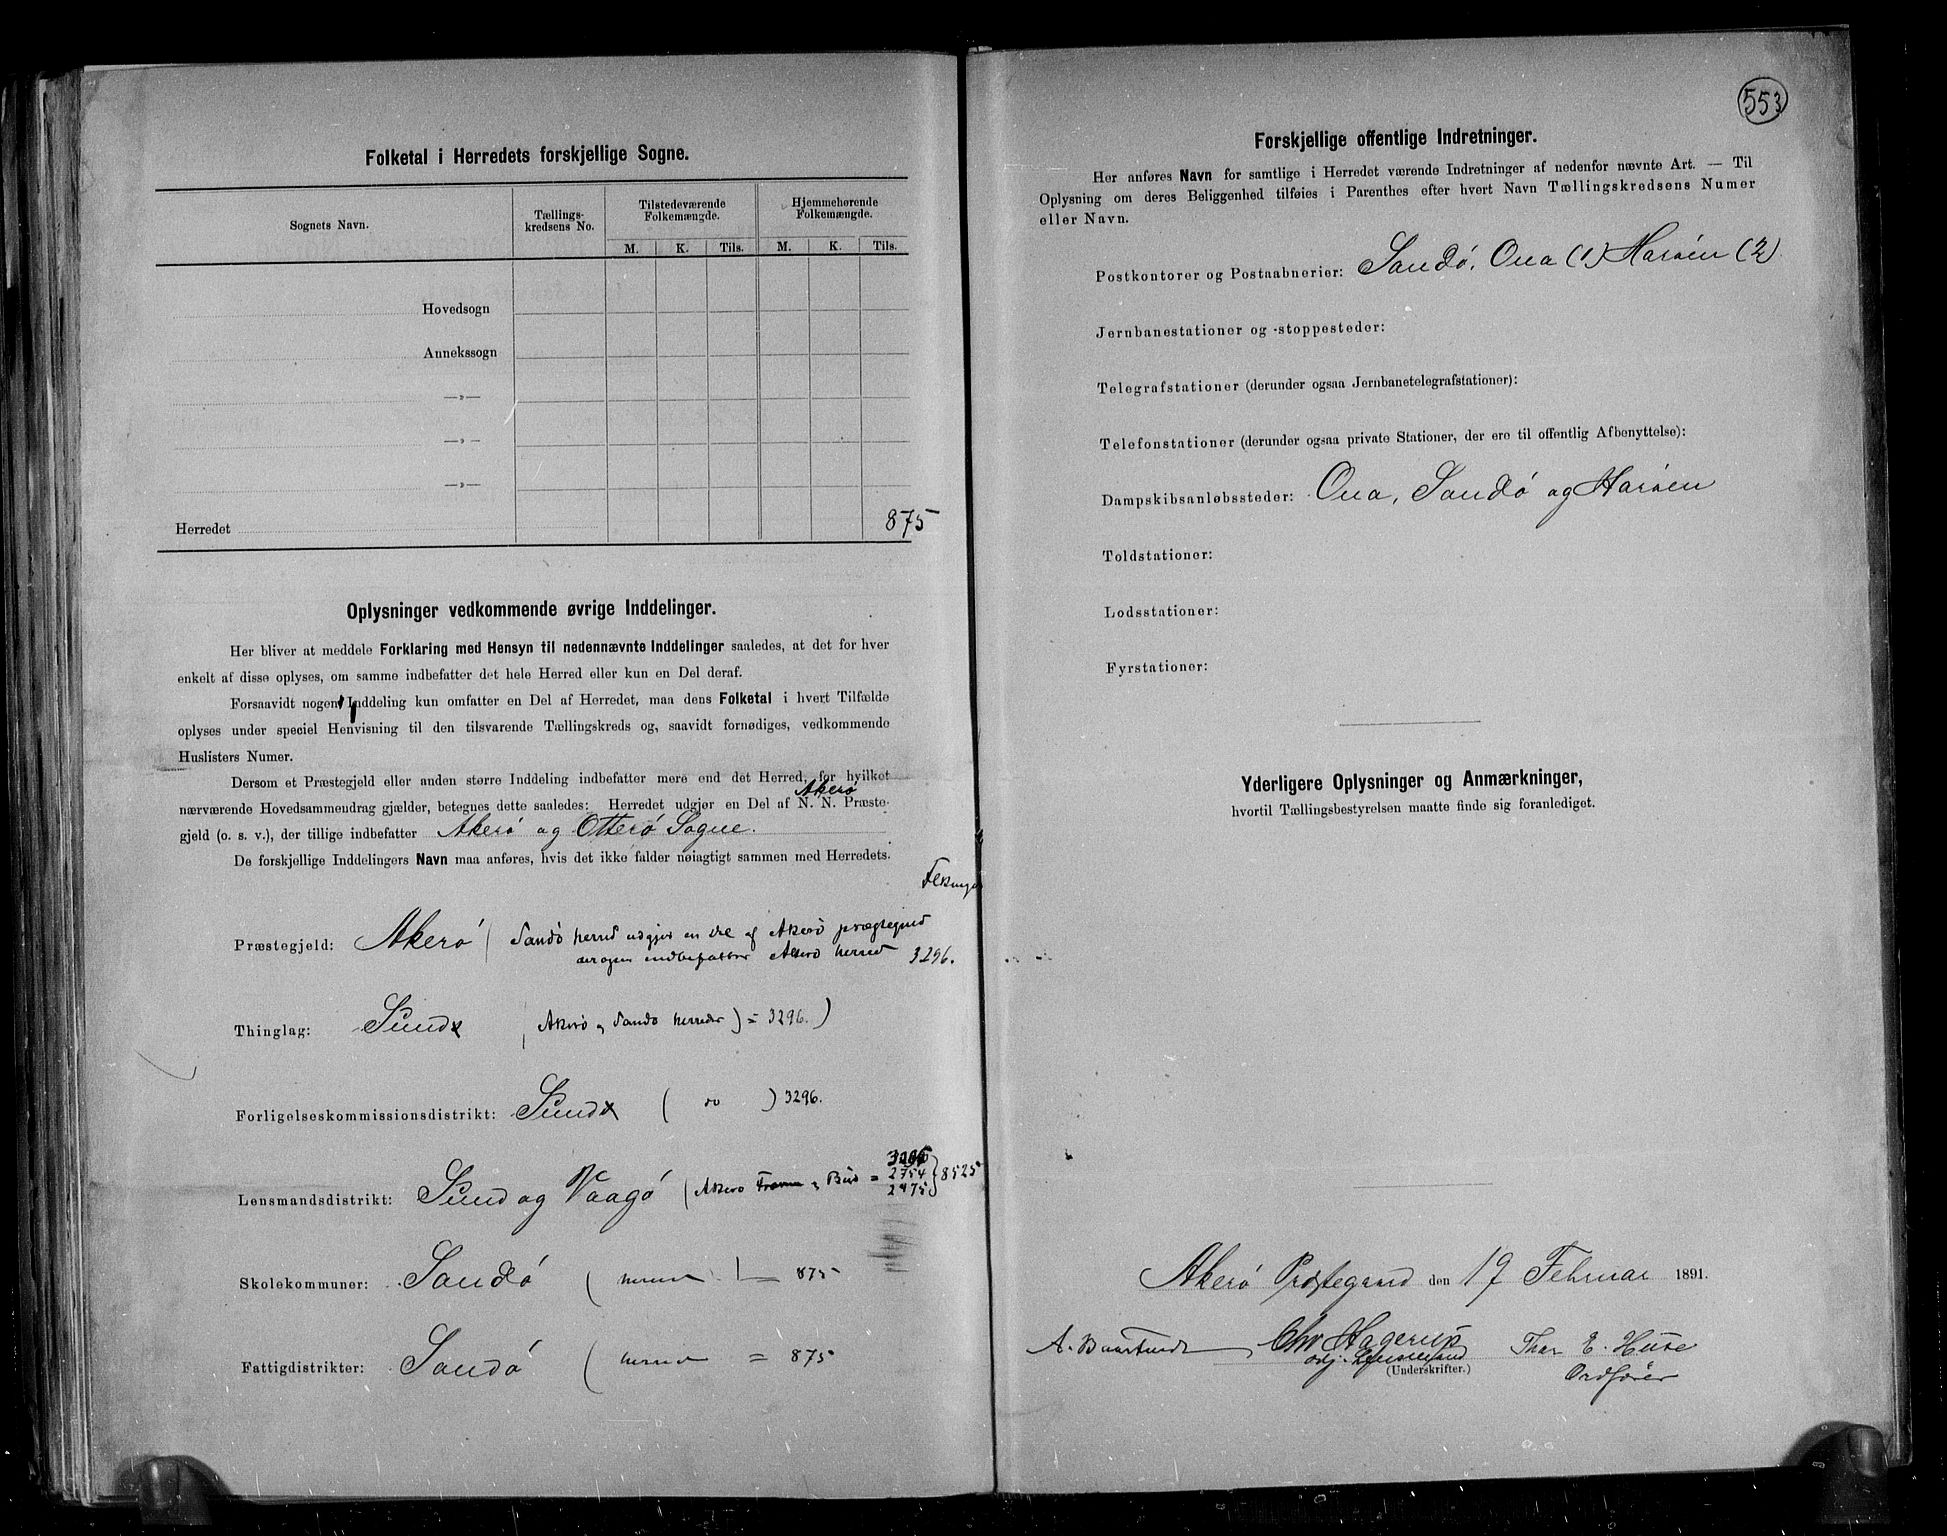 Folketal i Herredets forskjellige Sogne.
Sognets Navn.
Tællings-
kredsens No.
Tilstedeværende
Folkemængde.
Hjemmehørende
Folkemængde.
M. K. Tils. M. K. Tils.
Hovedsogn
Annekssogn
—»—
—»—
—»—
Herredet 875
Oplysninger vedkommende øvrige Inddelinger.
Her bliver at meddele Forklaring med Hensyn til nedennævnte Inddelinger saaledes, at det for hver
enkelt af disse oplyses, om samme indbefatter det hele Herred eller kun en Del deraf.
Forsaavidt nogen Inddeling kun omfatter en Del af Herredet, maa dens Folketal i hvert Tilfælde
oplyses under speciel Henvisning til den tilsvarende Tællingskreds og, saavidt fornødiges, vedkommende
Huslisters Numer.
Dersom et Præstegjeld eller anden større Inddeling indbefatter mere end det Herred, for hvilket
Akerø
nærværende Hovedsammendrag gjælder, betegnes dette saaledes: Herredet udgjør en Del af N. N. Præste-
gjeld (o. s. v.), der tillige indbefatter Akerø og Otterø Sogne.
De forskjellige Inddelingers Navn maa anføres, hvis det ikke falder nøiagtigt sammen med Herredets.
Præstegjeld: Akerø ( Sandø herred udgjør en del af Akerø præstegjeld
indbefatter Akerø herred 3296.
Thinglag: Sund (Akerø og Sandø herreder) = 3296.)
Forligelseskommissionsdistrikt: Sund ( do ) 3296.
3296
2754
2475 } 8525
Lensmandsdistrikt: Sund og Vaagø (Akerø Fræna og Bud =
Skolekommuner: Sandø ( herred ) = 875
Fattigdistrikter: Sandø ( herred = 875
553
Forskjellige offentlige Indretninger.
Her anføres Navn for samtlige i Herredet værende Indretninger af nedenfor nævnte Art. — Til
Oplysning om deres Beliggenhed tilføies i Parenthes efter hvert Navn Tællingskredsens Numer
eller Navn.
Postkontorer og Postaabnerier: Sandø, Ona (1) Harøen (2)
Jernbanestationer og -stoppesteder:
Telegrafstationer (derunder ogsaa Jernbanetelegrafstationer):
Telefonstationer (derunder ogsaa private Stationer, der ere til offentlig Afbenyttelse):
Dampskibsanløbssteder: Ona, Sandø og Harøen
Toldstationer:
Lodsstationer:
Fyrstationer:
Yderligere Oplysninger og Anmærkninger,
hvortil Tællingsbestyrelsen maatte finde sig foranlediget.
Akerø Præstegaard den 19 Februar 1891.
Chr Hagerup Thor E. Huse
Lensmand Ordfører
(Underskrifter.)